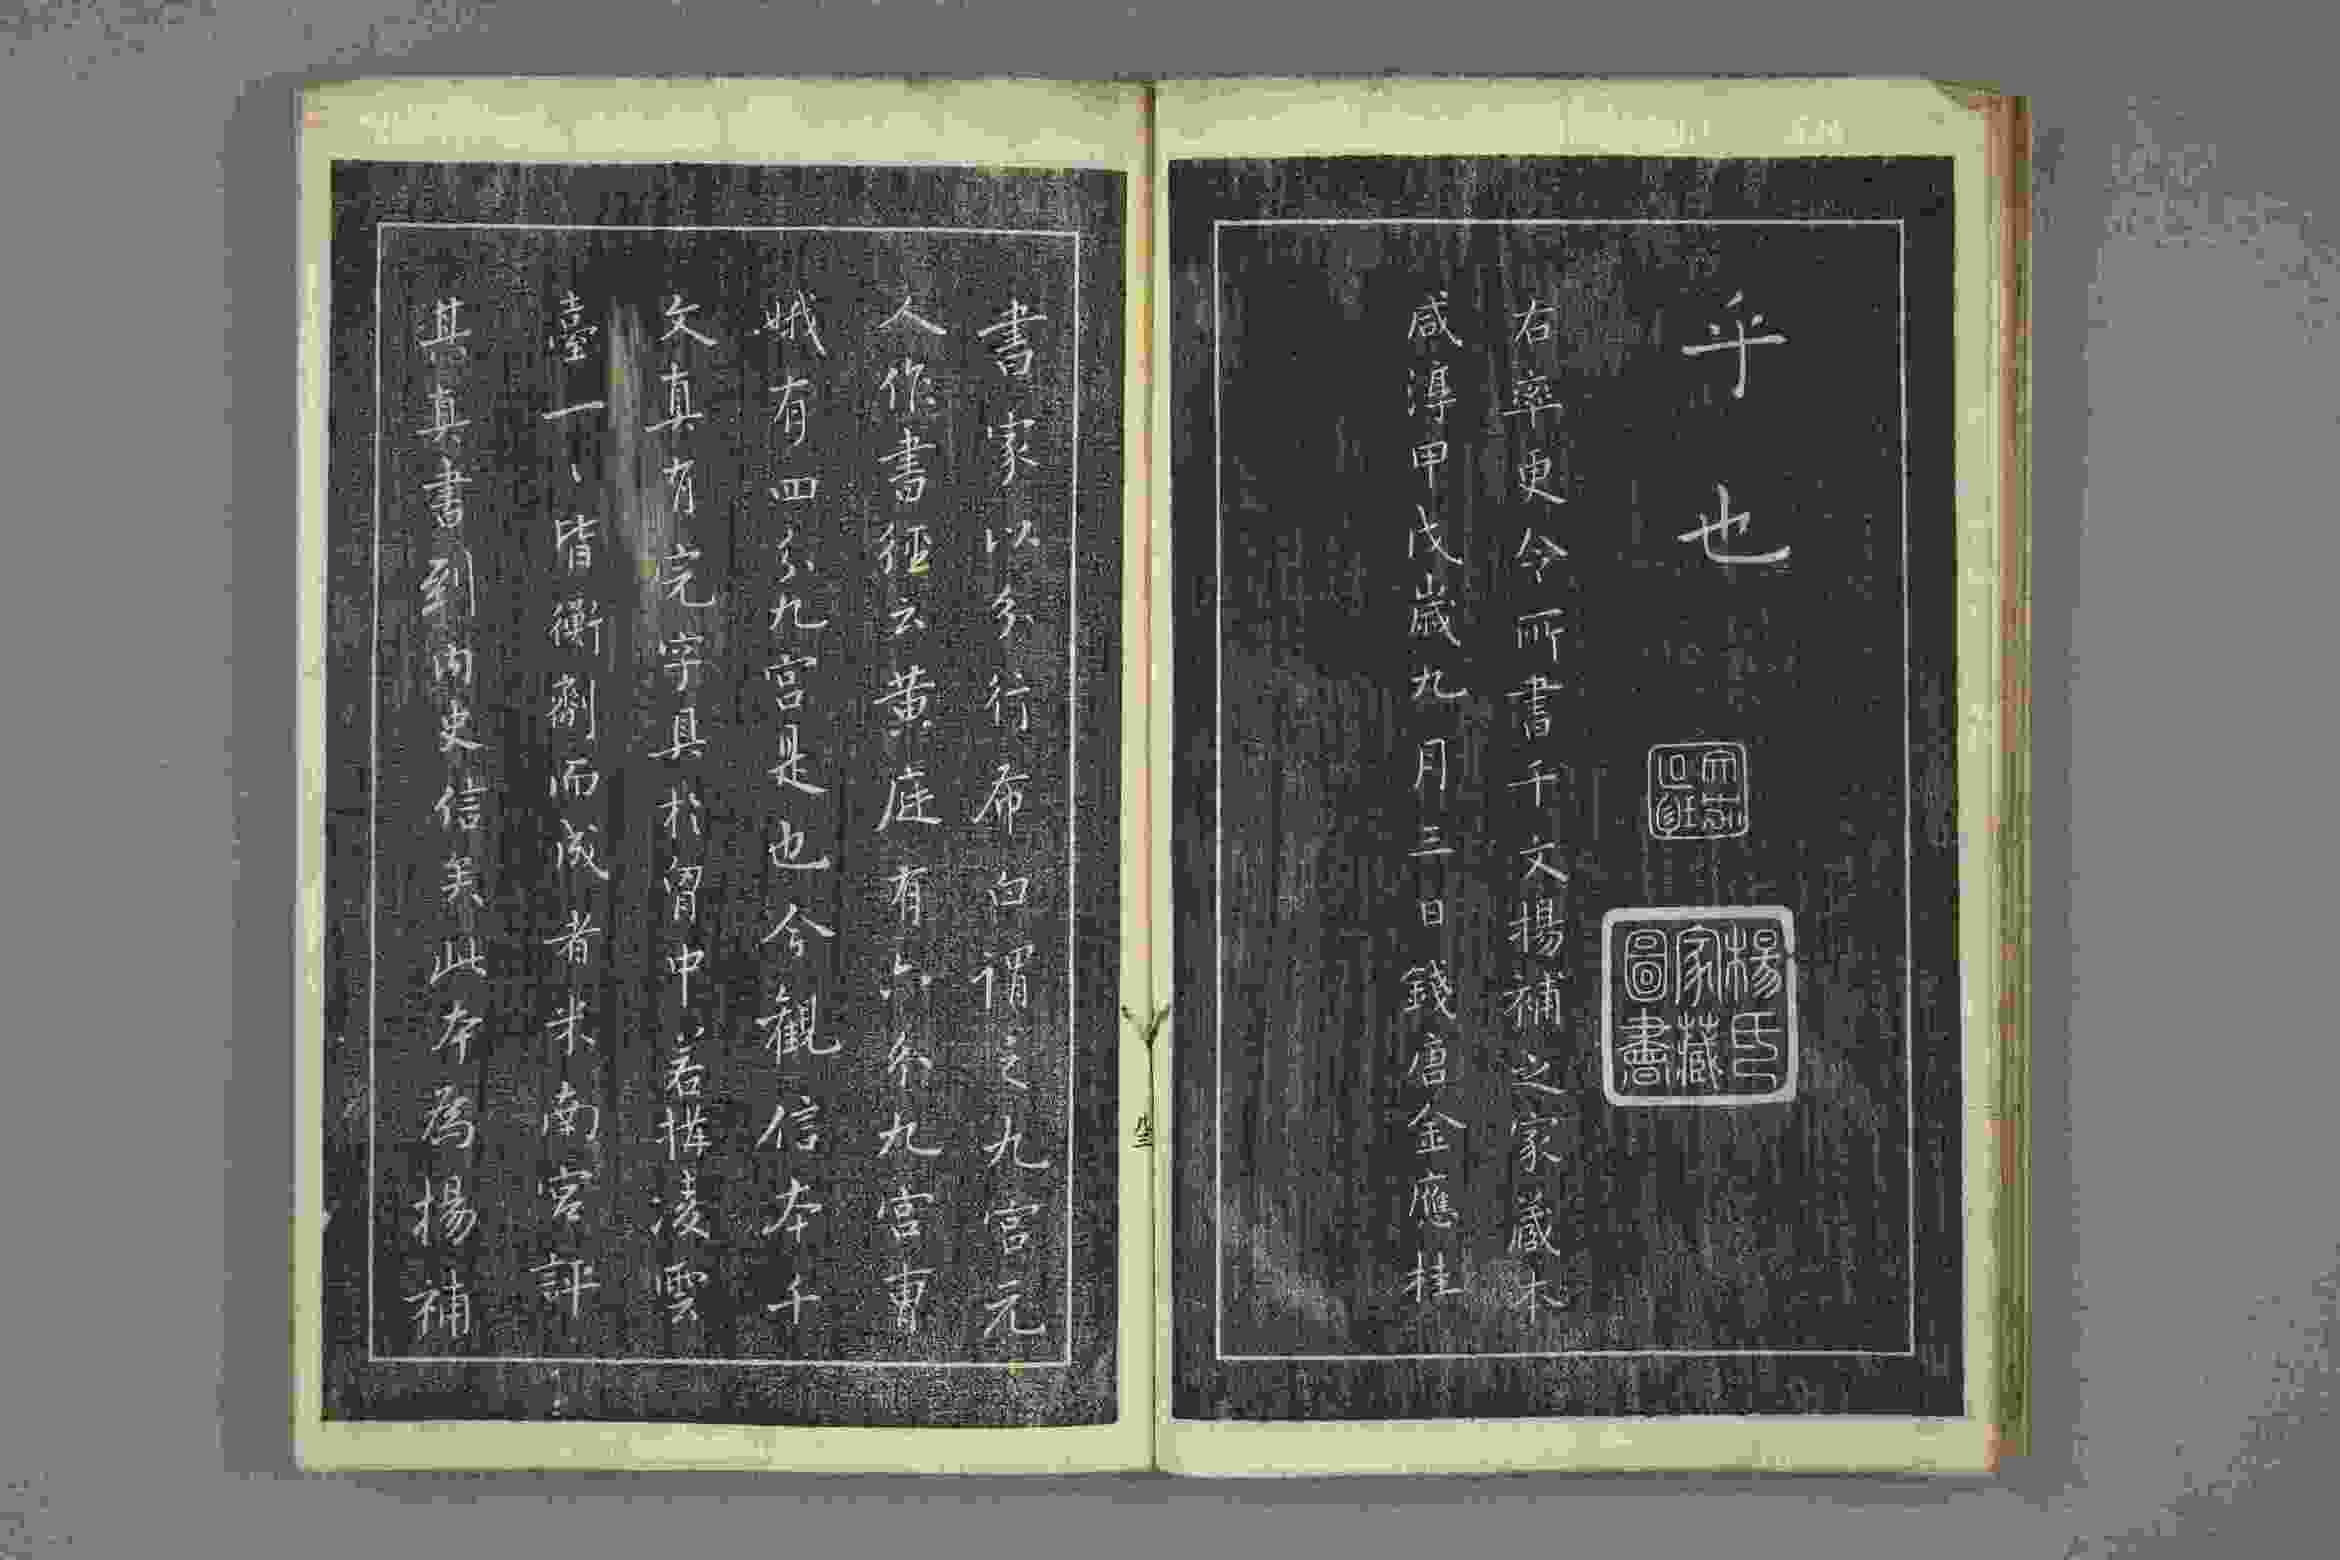 乎也
楊氏
家藏
圖書
右率更令所書千文楊補之家藏本
咸淳甲戊歲九月三日錢唐金應桂
書家以分行布白謂之九宮元
人作書經云黃庭有六分九宮曹
娥有四分九宮是也今觀信本千
文真有完字具於胷中若構凌雲
臺一〻皆衡劑而成者米南宮評
其真書到內史信矣此本為楊補